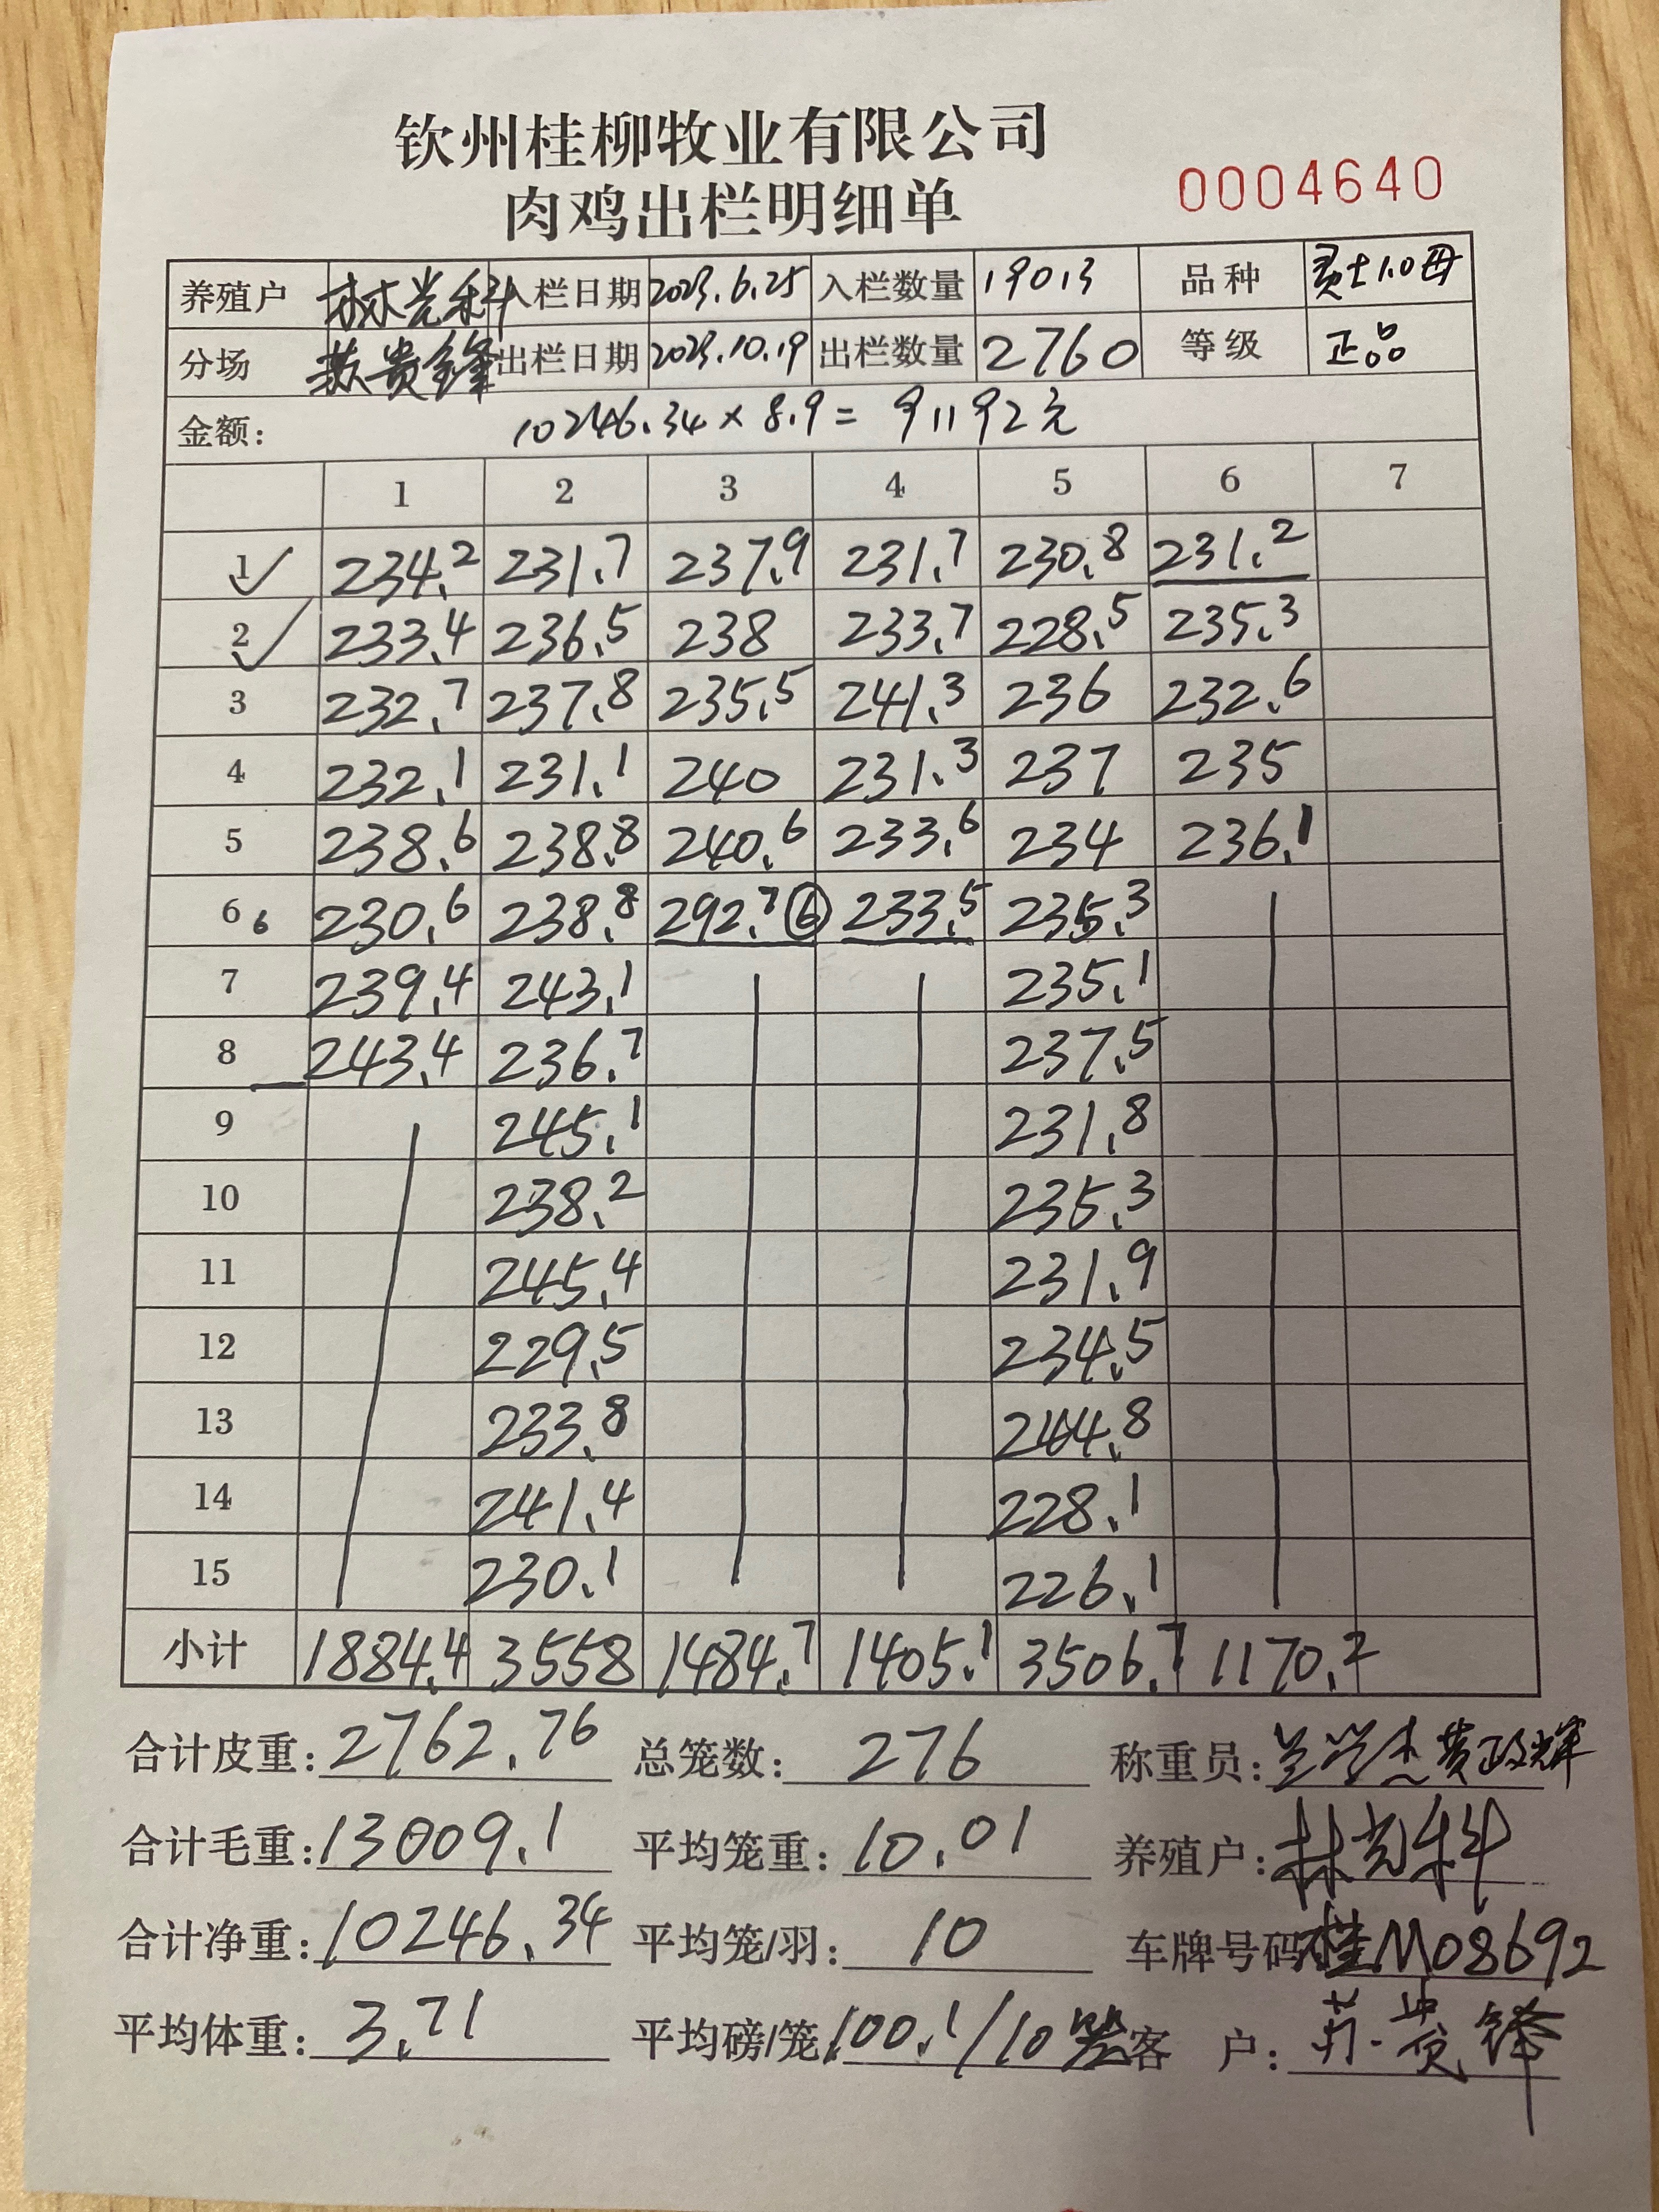 钦州桂柳牧业有限公司
肉鸡出栏明细单
0004640
养殖户 林光科 入栏日期 2023.6.25 入栏数量 19013 品种 灵士1.0母
分场 苏贵锋 出栏日期 2023.10.19 出栏数量 2760 等级 正品
金额: 10246.34×8.9=91192元
1 2 3 4 5 6 7
1 234.2 231.7 237.9 231.7 230.8 231.2
2 233.4 236.5 238 233.7 228.5 235.3
3 232.7 237.8 235.5 241.3 236 232.6
4 232.1 231.1 240 231.3 237 235
5 238.6 238.8 240.6 233.6 234 236.1
6 6 230.6 238.8 292.7 ⑥ 233.5 235.3
7 239.4 243.1 235.1
8 243.4 236.7 237.5
9 245.1 231.8
10 238.2 235.3
11 245.4 231.9
12 229.5 234.5
13 233.8 244.8
14 241.4 228.1
15 230.1 226.1
小计 1884.4 3558 1484.7 1405.1 3506.7 1170.2
合计皮重: 2762.76 总笼数: 276 称重员: 黄政辉
合计毛重: 13009.1 平均笼重: 10.01 养殖户: 林光科
合计净重: 10246.34 平均笼/羽: 10 车牌号码 桂M08692
平均体重: 3.71 平均磅/笼 100.1/10笼 客 户: 苏贵锋